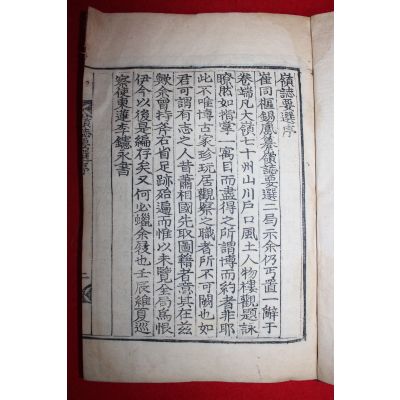 嶺誌要選序
崔同樞錫鳳&#8203;嶺誌要選二局示余仍丐置一辭于
卷端凡大嶺七十州山川戶口風土人物樓觀題詠
瞭然如指掌一寓目而盡得之所謂博而約者非耶
此不唯博古家珍玩居觀察之職者所不可闕也如
君可謂有志之人昔蕭相國先取圖籍者意其在玆
歟余曾持斧右省足跡殆遍而惟以未覽全局爲恨
伊今以後是編存矣又何必蠟余屐也壬辰維夏巡
察使東蓮李𨯶永書
嶺誌要選序